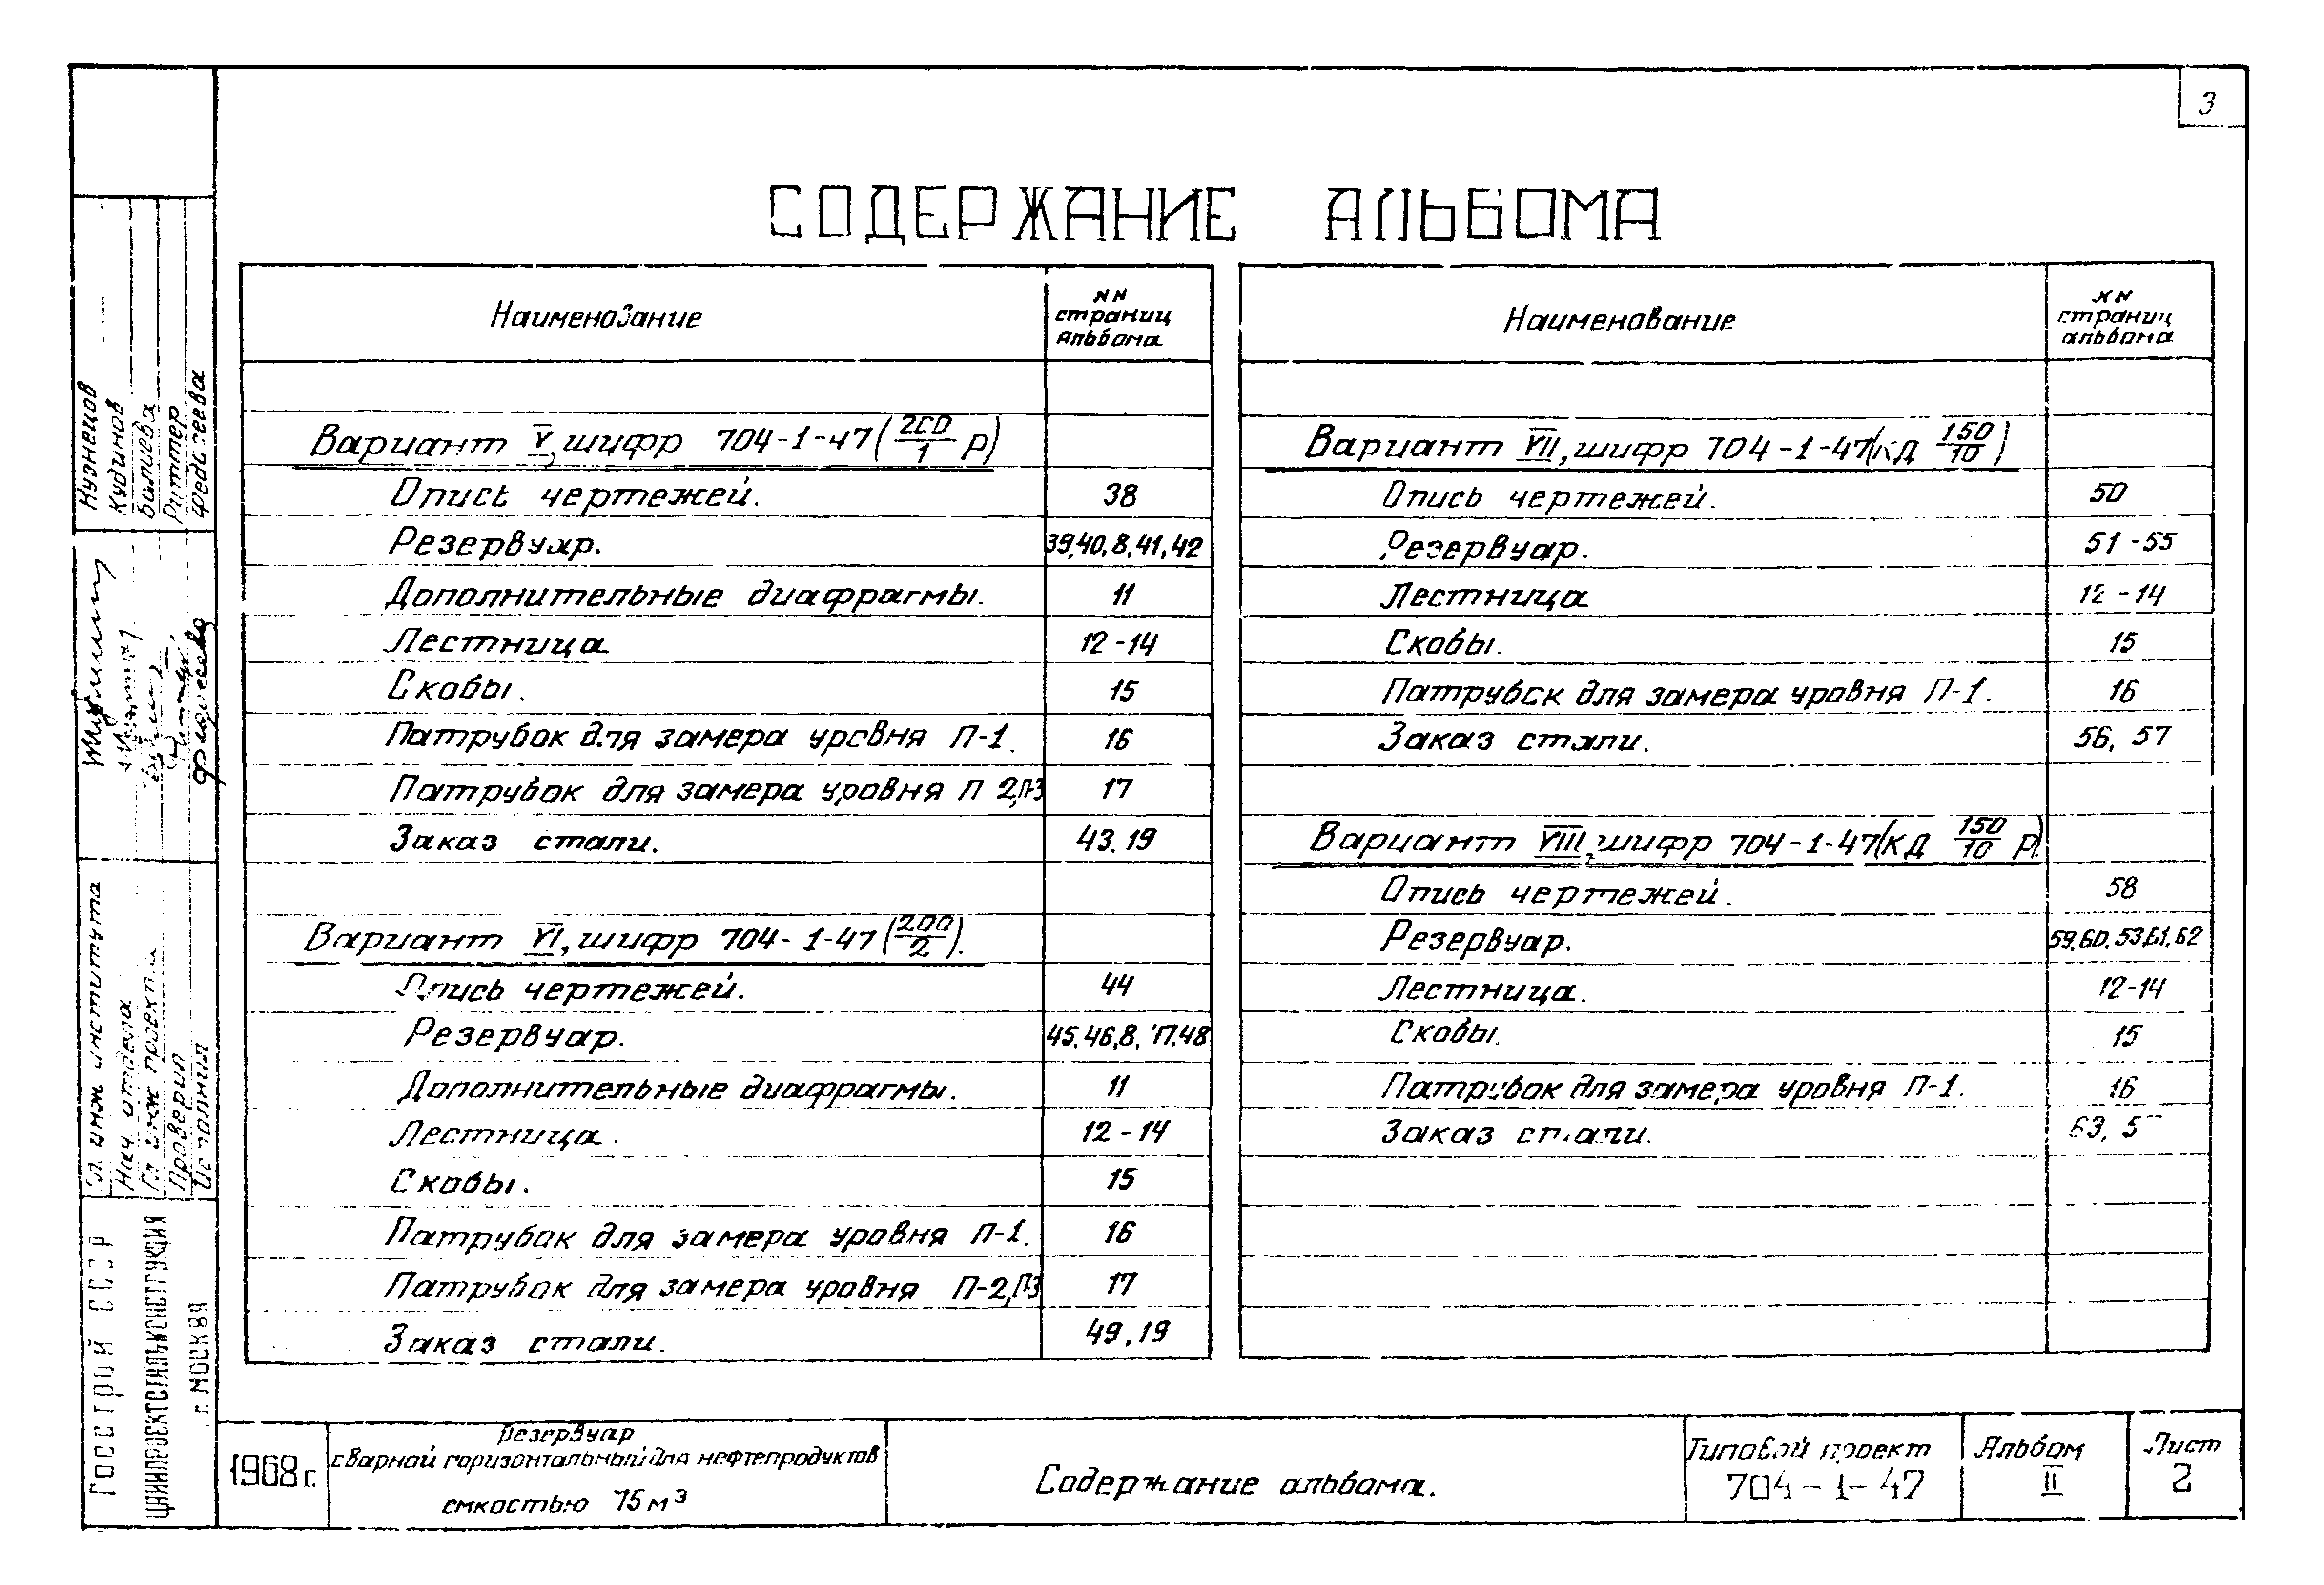 3
СОДЕРЖАНИЕ АЛЬБОМА
Наименование
NN страниц альбома
Вариант V, шифр 704-1-47 (200/1 Р)
Опись чертежей. 38
Резервуар. 39,40,8,41,42
Дополнительные диафрагмы. 11
Лестница 12-14
Скобы. 15
Патрубок для замера уровня П-1. 16
Патрубок для замера уровня П 2,П-3 17
Заказ стали. 43.19
Вариант VI, шифр 704-1-47 (200/2).
Опись чертежей. 44
Резервуар. 45.46,8,47.48
Дополнительные диафрагмы. 11
Лестница. 12-14
Скобы. 15
Патрубок для замера уровня П-1. 16
Патрубок для замера уровня П-2,П-3 17
Заказ стали. 49,19
Наименование
NN страниц альбома
Вариант VII, шифр 704-1-47(КД 150/10)
Опись чертежей. 50
Резервуар. 51-55
Лестница 12-14
Скобы. 15
Патрубок для замера уровня П-1. 16
Заказ стали. 56, 57
Вариант VIII, шифр 704-1-47(КД 150/10 Р).
Опись чертежей. 58
Резервуар. 59,60,53,61,62
Лестница. 12-14
Скобы. 15
Патрубок для замера уровня П-1. 16
Заказ стали. 63,
Гл. инж. института Кузнецов
Нач. отдела Кудинов
Гл. инж. проекта
Проверил Риттер
Исполнил Федосеева
Госстрой СССР
ЦНИИПРОЕКТСТАЛЬКОНСТРУКЦИЯ
г. МОСКВА
1968 г.
Резервуар
сварной горизонтальный для нефтепродуктов
емкостью 75 м³
Содержание альбома.
Типовой проект
704-1-47
Альбом
II
Лист
2